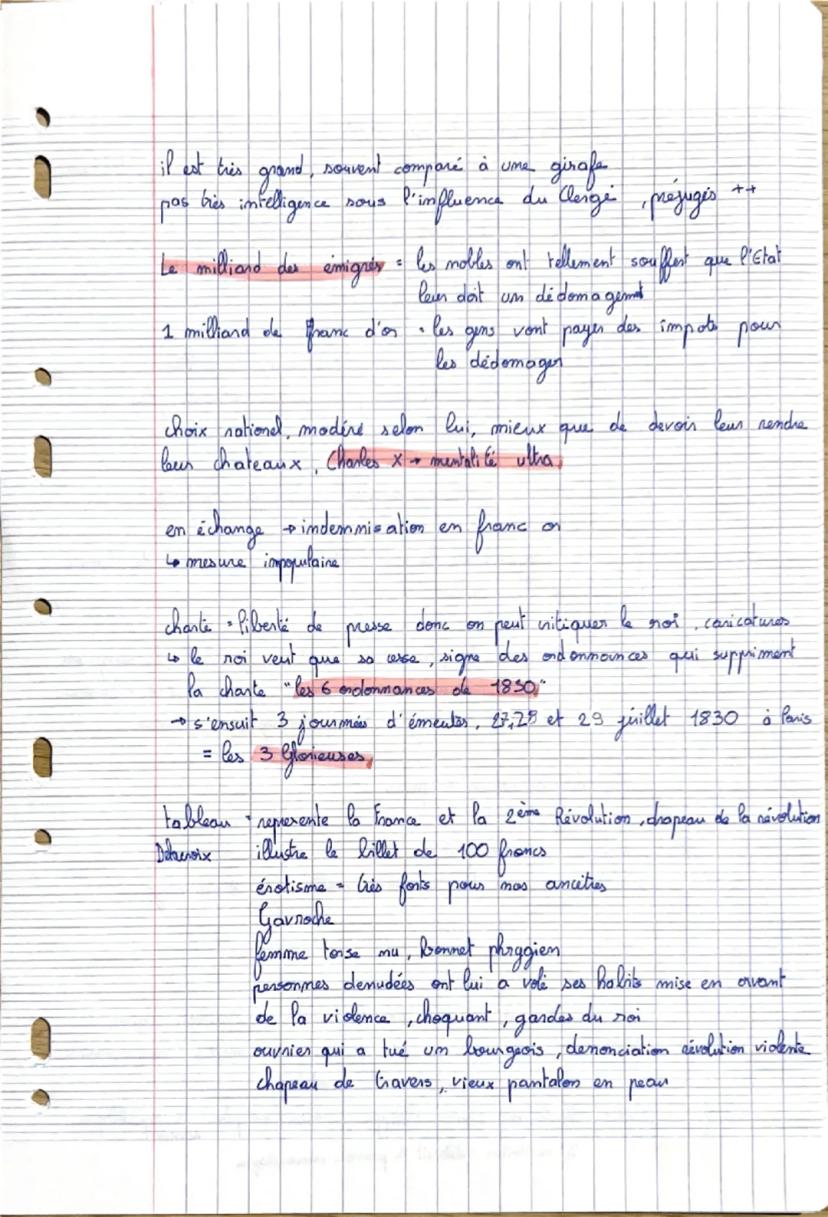 il est très grand, souvent comparé à une girafe
pas très intelligence sous l'influence du Clergé, préjugés ++
Le milliard des émigrés = les nobles ont tellement souffert que l'Etat
leur doit un dédomagement
1 milliard de franc d'or = les gens vont payer des impots pour
les dédomager
choix rationel, modéré selon lui, mieux que de devoir leur rendre
leurs chateaux, Charles X → mentalité ultra,
en échange → indemnisation en franc or
↳ mesure impopulaire
charte = liberté de presse donc on peut critiquer le roi, caricatures
↳ le roi veut que sa cesse, signe des ordonnances qui suppriment
la charte "les 6 ordonnances de 1830"
→ s'ensuit 3 journées d'émeutes, 27,28 et 29 juillet 1830 à Paris
= les 3 Glorieuses,
tableau = represente la France et la 2ème Révolution, drapeau de la révolution
Delacroix illustre le billet de 100 francs
érotisme = très forts pour nos ancêtres
Gavroche
femme torse nu, bonnet phrygien
personnes denudées ont lui a volé ses habits mise en avant
de la violence, choquant, gardes du roi
ouvrier qui a tué un bourgeois, denonciation révolution violente
chapeau de travers, vieux pantalon en peau